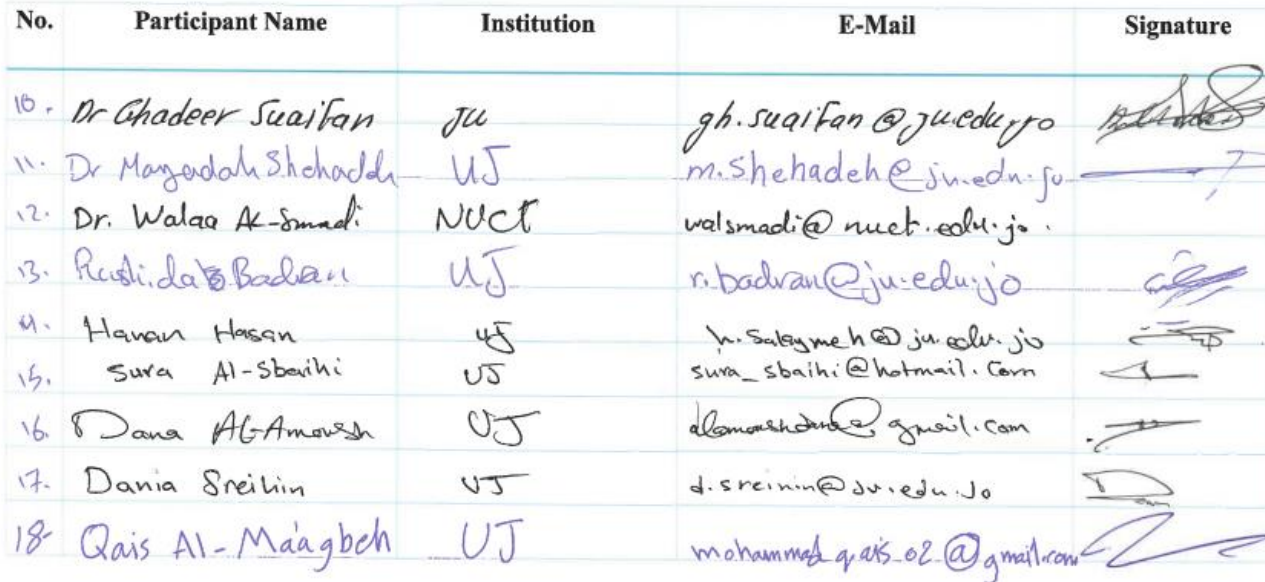 No. Participant Name Institution E-Mail Signature
10. Dr Ghadeer Suaifan JU gh.suaifan@ju.edu.jo
11. Dr Mayadah Shehadeh UJ m.shehadeh@ju.edu.jo
12. Dr. Walaa Al-Smadi NUCT walsmadi@nuct.edu.jo.
13. Badran UJ r.badran@ju.edu.jo
14. Hanan Hasan UJ h.salaymeh@ju.edu.jo
15. Sura Al-Sbaihi UJ sura_sbaihi@hotmail.Com
16. Dana Al-Amoush UJ gmail.com
17. Dania UJ
18- Qais Al-Ma'agbeh UJ mohammad_qais_02@gmail.com